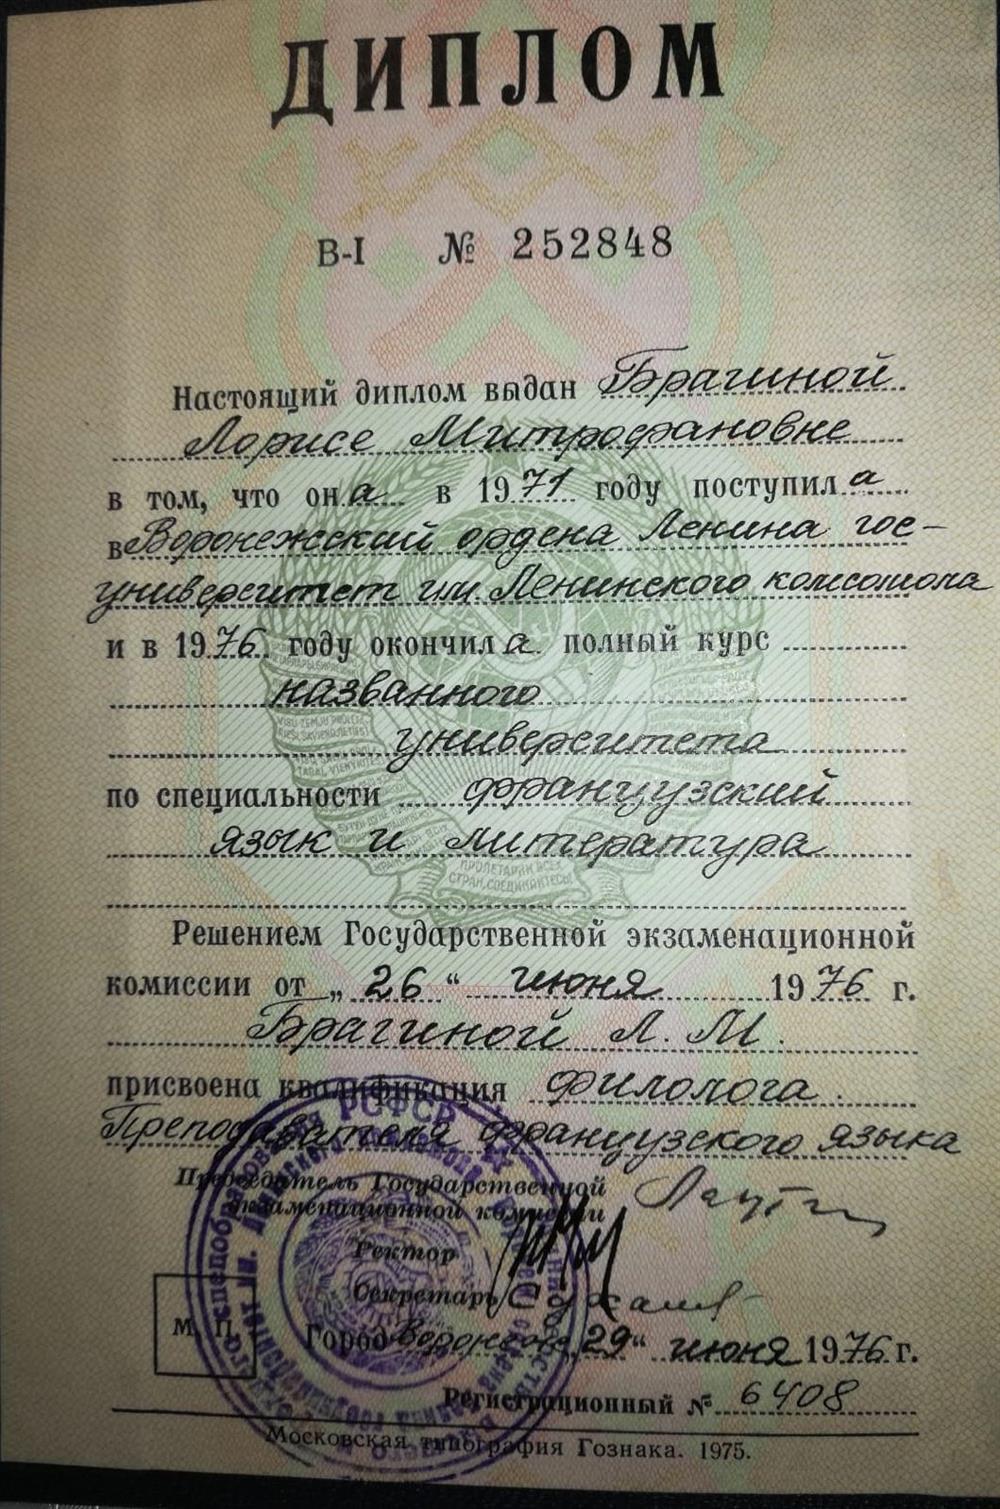 ДИПЛОМ
В-I № 252848
Настоящий диплом выдан Брагиной
Лорисе Митрофановне
в том, что она в 1971 году поступила
в Воронежский ордена Ленина гос-
университет им. Ленинского комсомола
и в 1976 году окончила полный курс
названного
университета
по специальности французский
язык и литература
ПРОЛЕТАРИИ ВСЕХ
СТРАН, СОЕДИНЯЙТЕСЬ!
Решением Государственной экзаменационной
комиссии от „26“ июня 1976 г.
Брагиной Л. М.
присвоена квалификация филолога.
Преподавателя французского языка
Председатель Государственной
экзаменационной комиссии
Ректор
Секретарь
М. П.
Город Воронеж „29“ июня 1976 г.
Регистрационный № 6408
Московская типография Гознака. 1975.
РСФСР